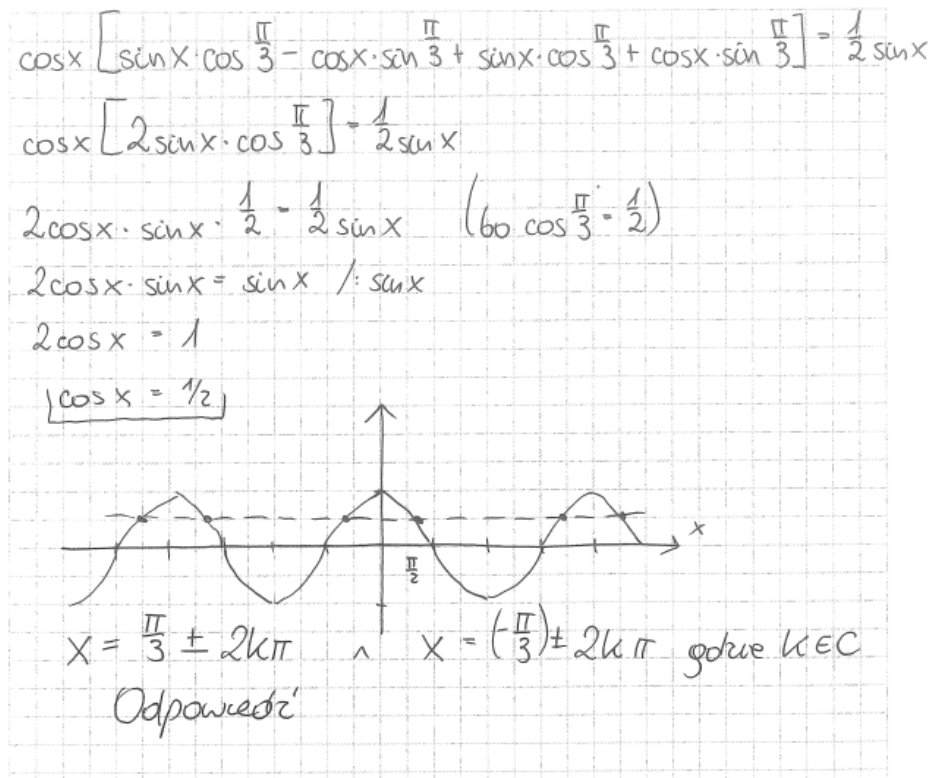 cosx [sinx·cos π/3 - cosx·sin π/3 + sinx·cos π/3 + cosx·sin π/3] = 1/2 sinx
cosx [2sinx·cos π/3] = 1/2 sinx
2cosx · sinx · 1/2 = 1/2 sinx (bo cos π/3 = 1/2)
2cosx · sinx = sinx /: sinx
2cosx = 1
cosx = 1/2
x
π/2
X = π/3 ± 2kπ ∧ X = (-π/3) ± 2kπ gdzie k∈C
Odpowiedź